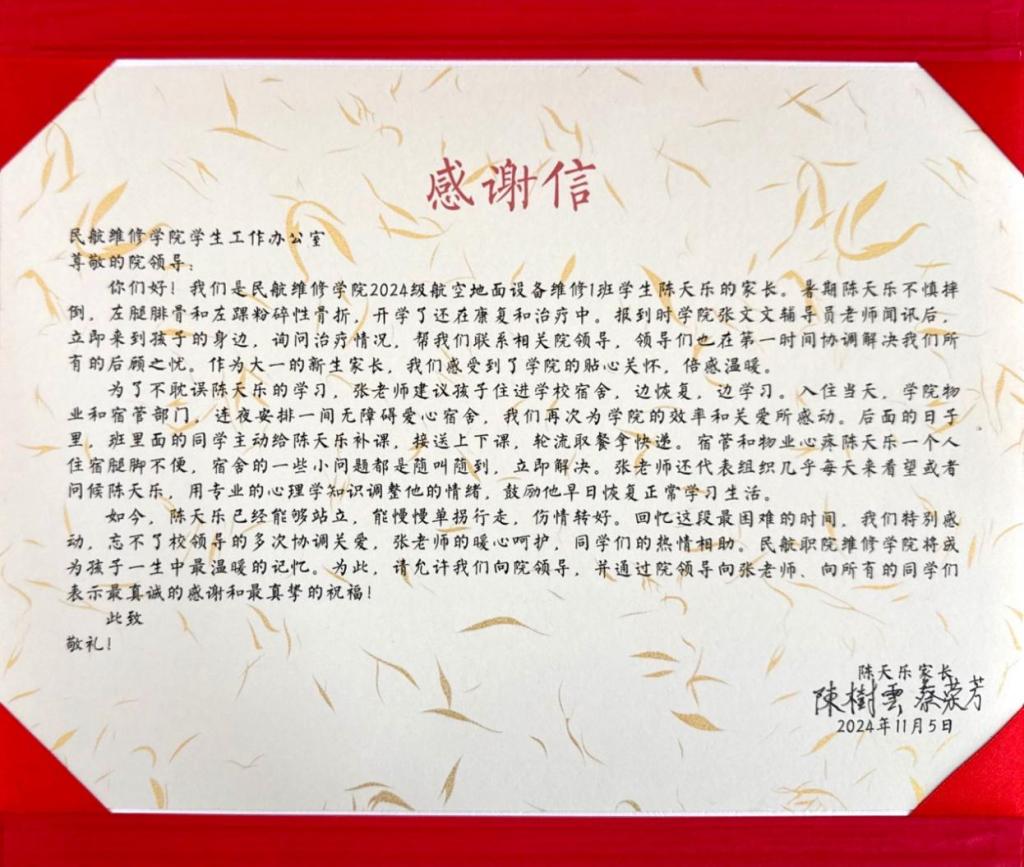 感谢信
民航维修学院学生工作办公室
尊敬的院领导：
你们好！我们是民航维修学院2024级航空地面设备维修1班学生陈天乐的家长。暑期陈天乐不慎摔
倒，左腿腓骨和左踝粉碎性骨折，开学了还在康复和治疗中。报到时学院张文文辅导员老师闻讯后，
立即来到孩子的身边，询问治疗情况，帮我们联系相关院领导，领导们也在第一时间协调解决我们所
有的后顾之忧。作为大一的新生家长，我们感受到了学院的贴心关怀，倍感温暖。
为了不耽误陈天乐的学习，张老师建议孩子住进学校宿舍，边恢复，边学习。入住当天，学院物
业和宿管部门，连夜安排一间无障碍爱心宿舍，我们再次为学院的效率和关爱所感动。后面的日子
里，班里面的同学主动给陈天乐补课，接送上下课，轮流取餐拿快递。宿管和物业心疼陈天乐一个人
住宿腿脚不便，宿舍的一些小问题都是随叫随到，立即解决。张老师还代表组织几乎每天来看望或者
问候陈天乐，用专业的心理学知识调整他的情绪，鼓励他早日恢复正常学习生活。
如今，陈天乐已经能够站立，能慢慢单拐行走，伤情转好。回忆这段最困难的时间，我们特别感
动，忘不了校领导的多次协调关爱，张老师的暖心呵护，同学们的热情相助。民航职院维修学院将成
为孩子一生中最温暖的记忆。为此，请允许我们向院领导，并通过院领导向张老师、向所有的同学们
表示最真诚的感谢和最真挚的祝福！
此致
敬礼！
陈天乐家长
陳樹雲 蔡荣芳
2024年11月5日